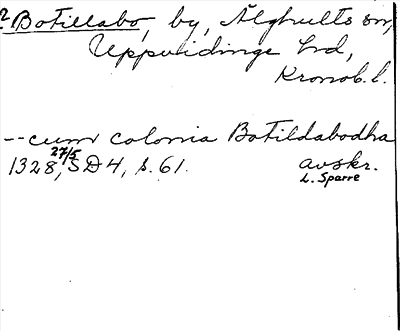 ? Botillabo, by, Älghults sn,
Uppvidinge hd,
Kronob. l.
-- cum colonia Botildabodha
1328 27/5, SD 4, s. 61. avskr.
L. Sparre